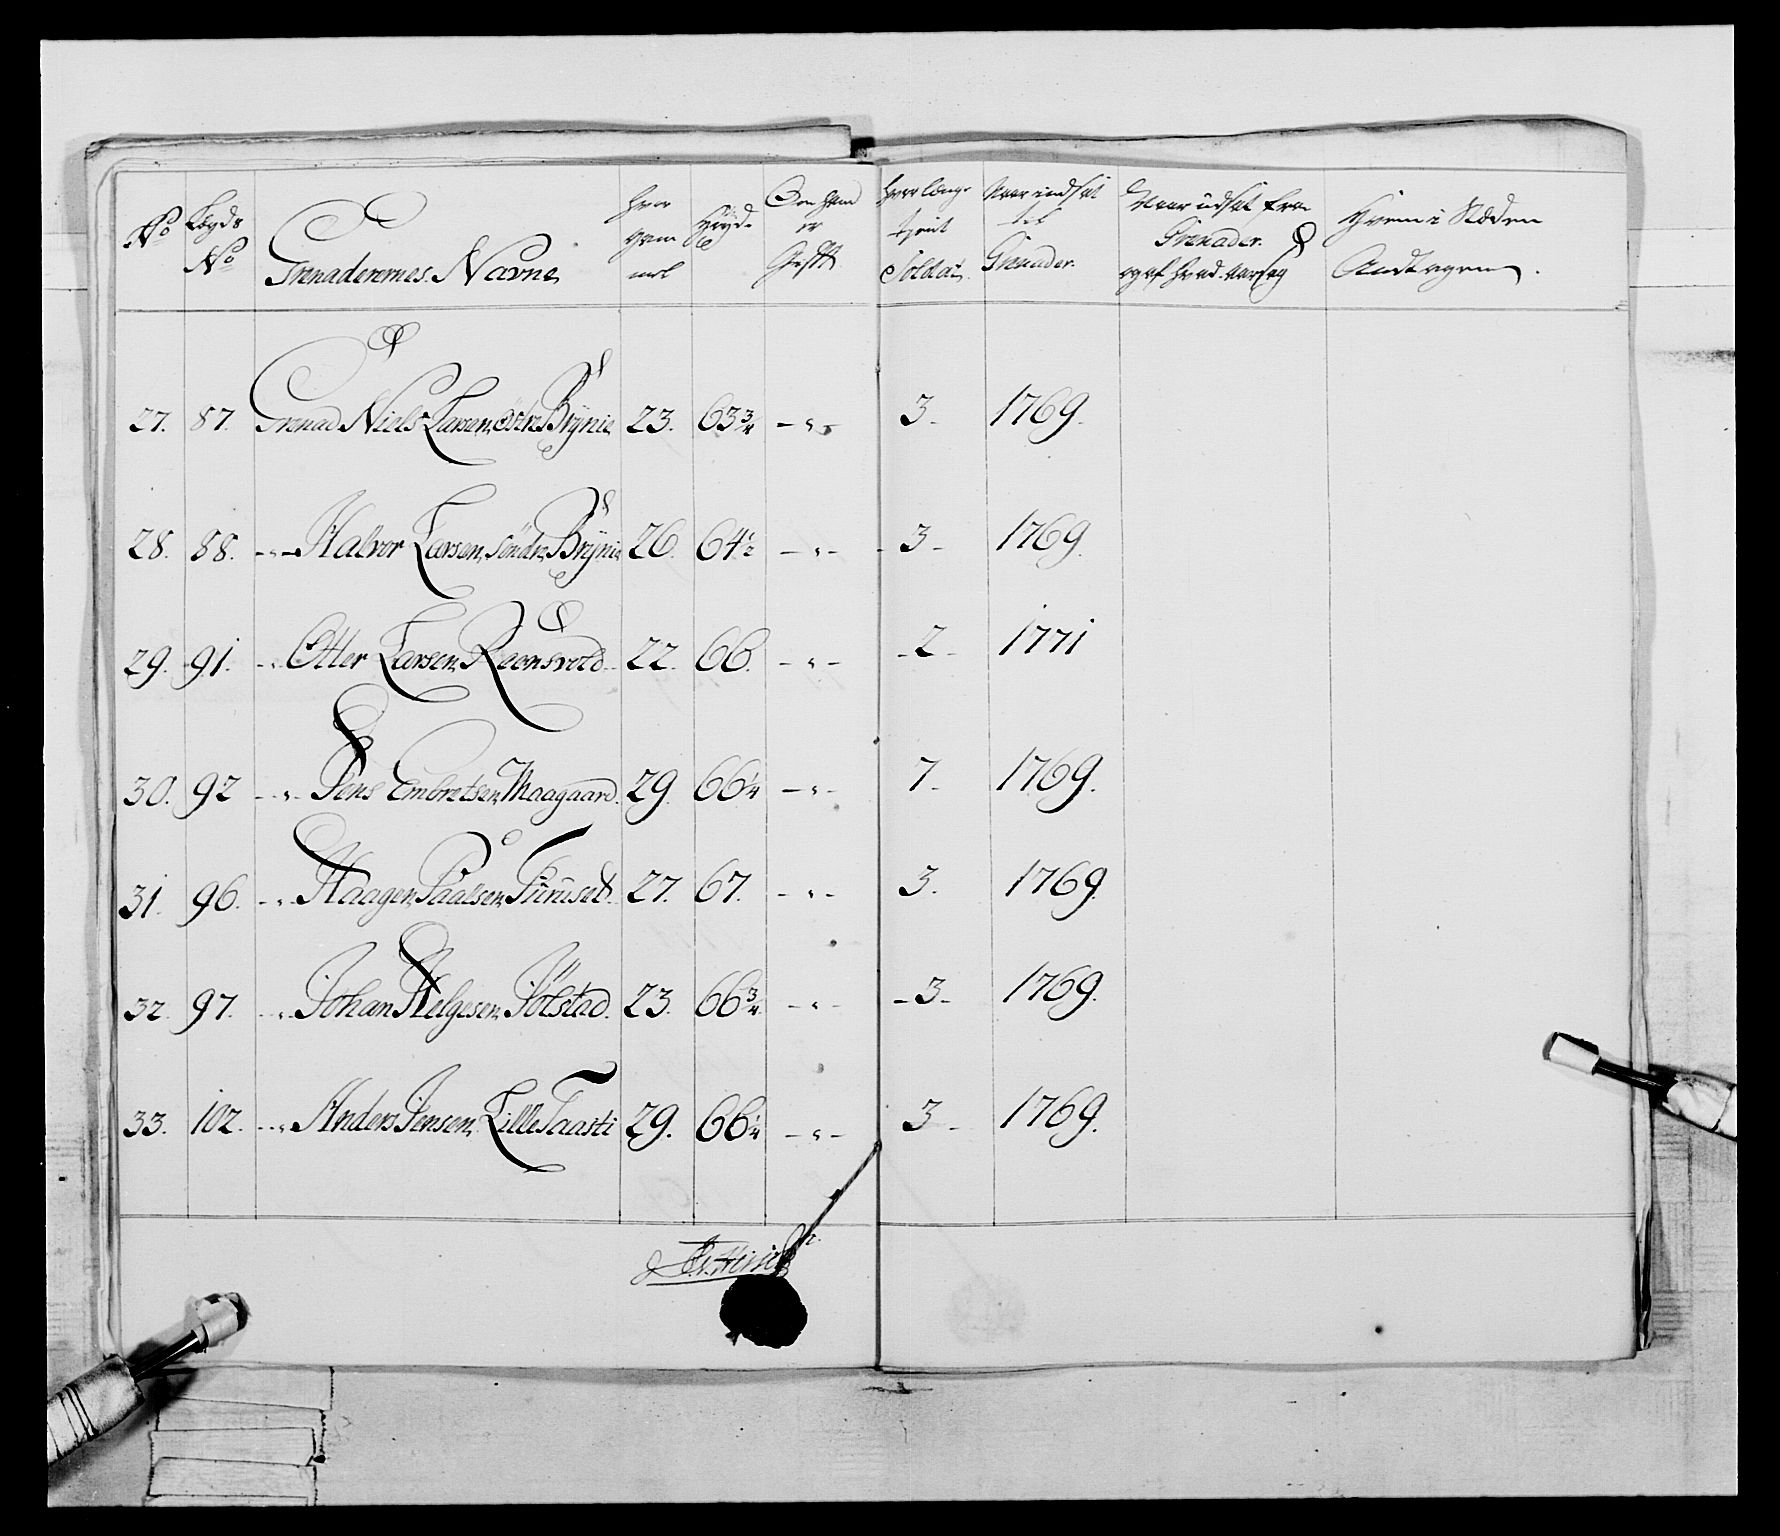 No Lægds No Grenaderernes Navne hvor gammel Høyde Om hand er Gift hvor længe tient Soldat Naar indsat til Grenader Naar udsat fra Grenader og af hvad aarsag Hvem i Stæden Andtagen.
27. 87. Grenad Niels Larsen, östre Brÿnie 23. 63 3/4 - " - 3. 1769.
28. 88. - " - Halvor Larsen, söndre Brÿnie 26. 64 1/2 - " - 3 - 1769.
29. 91. - " Otter Larsen, Ravnsvold 22. 66. - " - 2 - 1771
30. 92 - " - Jens Embretsen, Maagaard 29. 66 1/4 - " - 7. 1769.
31. 96. - " Haagen Paalsen, Furuset 27. 67. - " - 3. 1769.
32. 97. - " Johan Helgesen, Jölstad 23. 66 3/4 - " - - 3 - 1769.
33. 102. - " Anders Jensen, Lille Taasti 29. 66 1/4 - " - 3 - 1769.